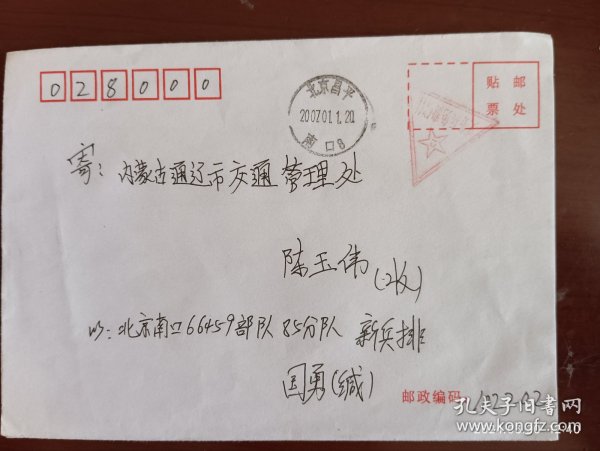 028000
北京昌平
2007.01.1.20
南口8
贴 邮
票 处
寄:内蒙古通辽市交通管理处
陈玉伟(收)
北京南口66459部队85分队 新兵排
国勇(缄)
邮政编码
孔夫子旧书网
www.kongfz.com